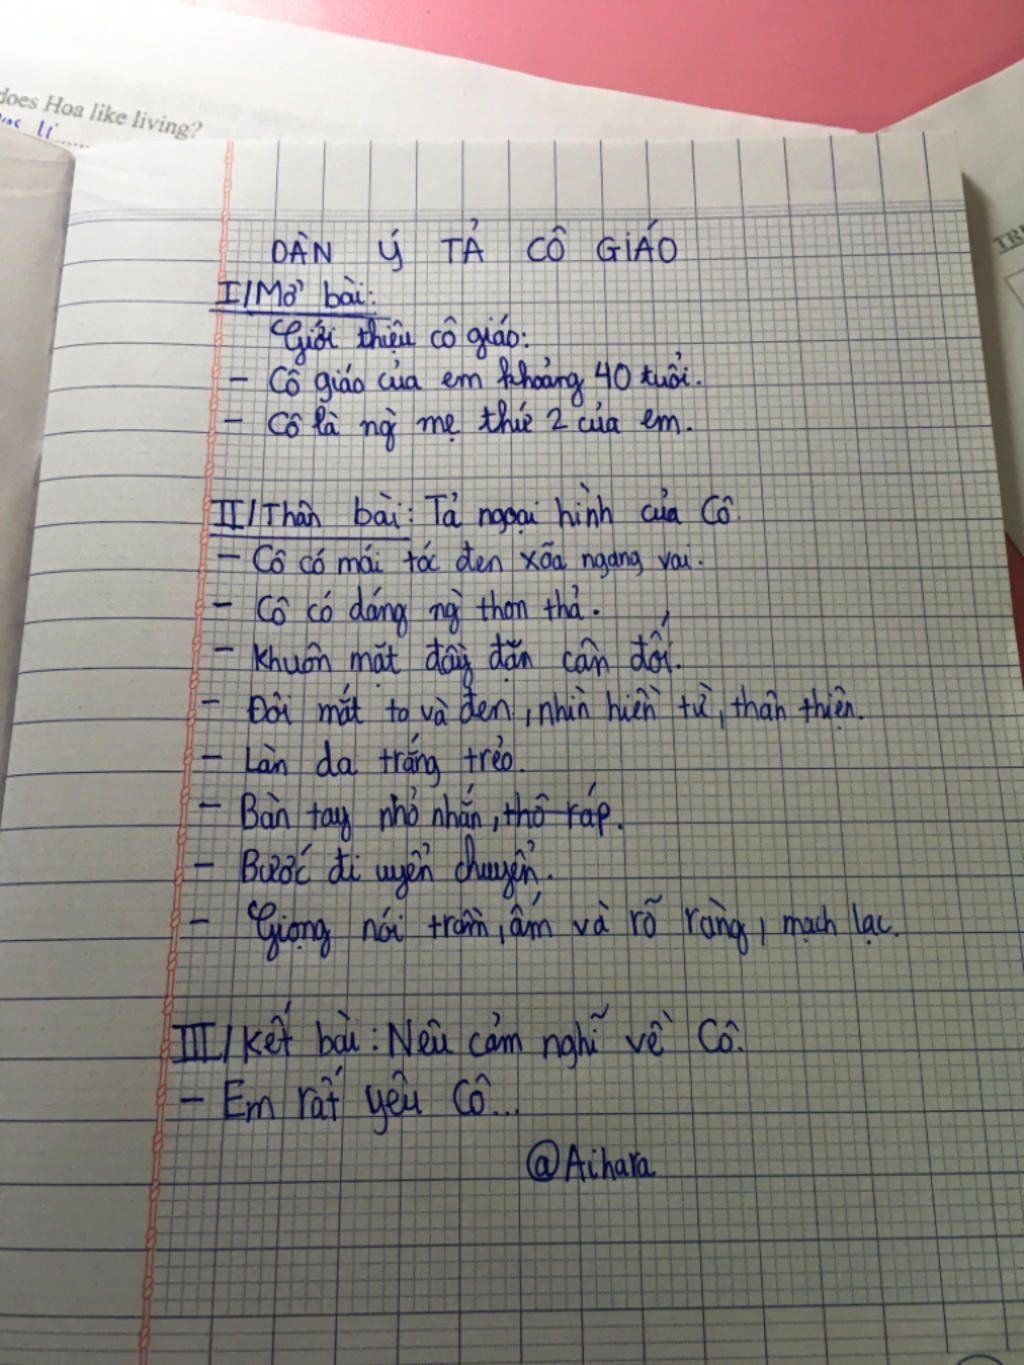 does Hoa like living?
DÀN Ý TẢ CÔ GIÁO
I/Mở bài:
Giới thiệu cô giáo:
- Cô giáo của em khoảng 40 tuổi.
- Cô là ng` mẹ thứ 2 của em.
II/Thân bài: Tả ngoại hình của Cô.
- Cô có mái tóc đen xõa ngang vai.
- Cô có dáng ng` thon thả.
- Khuôn mặt đầy đặn cân đối.
- Đôi mắt to và đen, nhìn hiền từ, thân thiện.
- Làn da trắng trẻo.
- Bàn tay nhỏ nhắn, thô ráp.
- Bước đi uyển chuyển.
- Giọng nói trầm, ấm và rõ ràng, mạch lạc.
III/Kết bài: Nêu cảm nghĩ về Cô.
- Em rất yêu Cô...
@Aihara